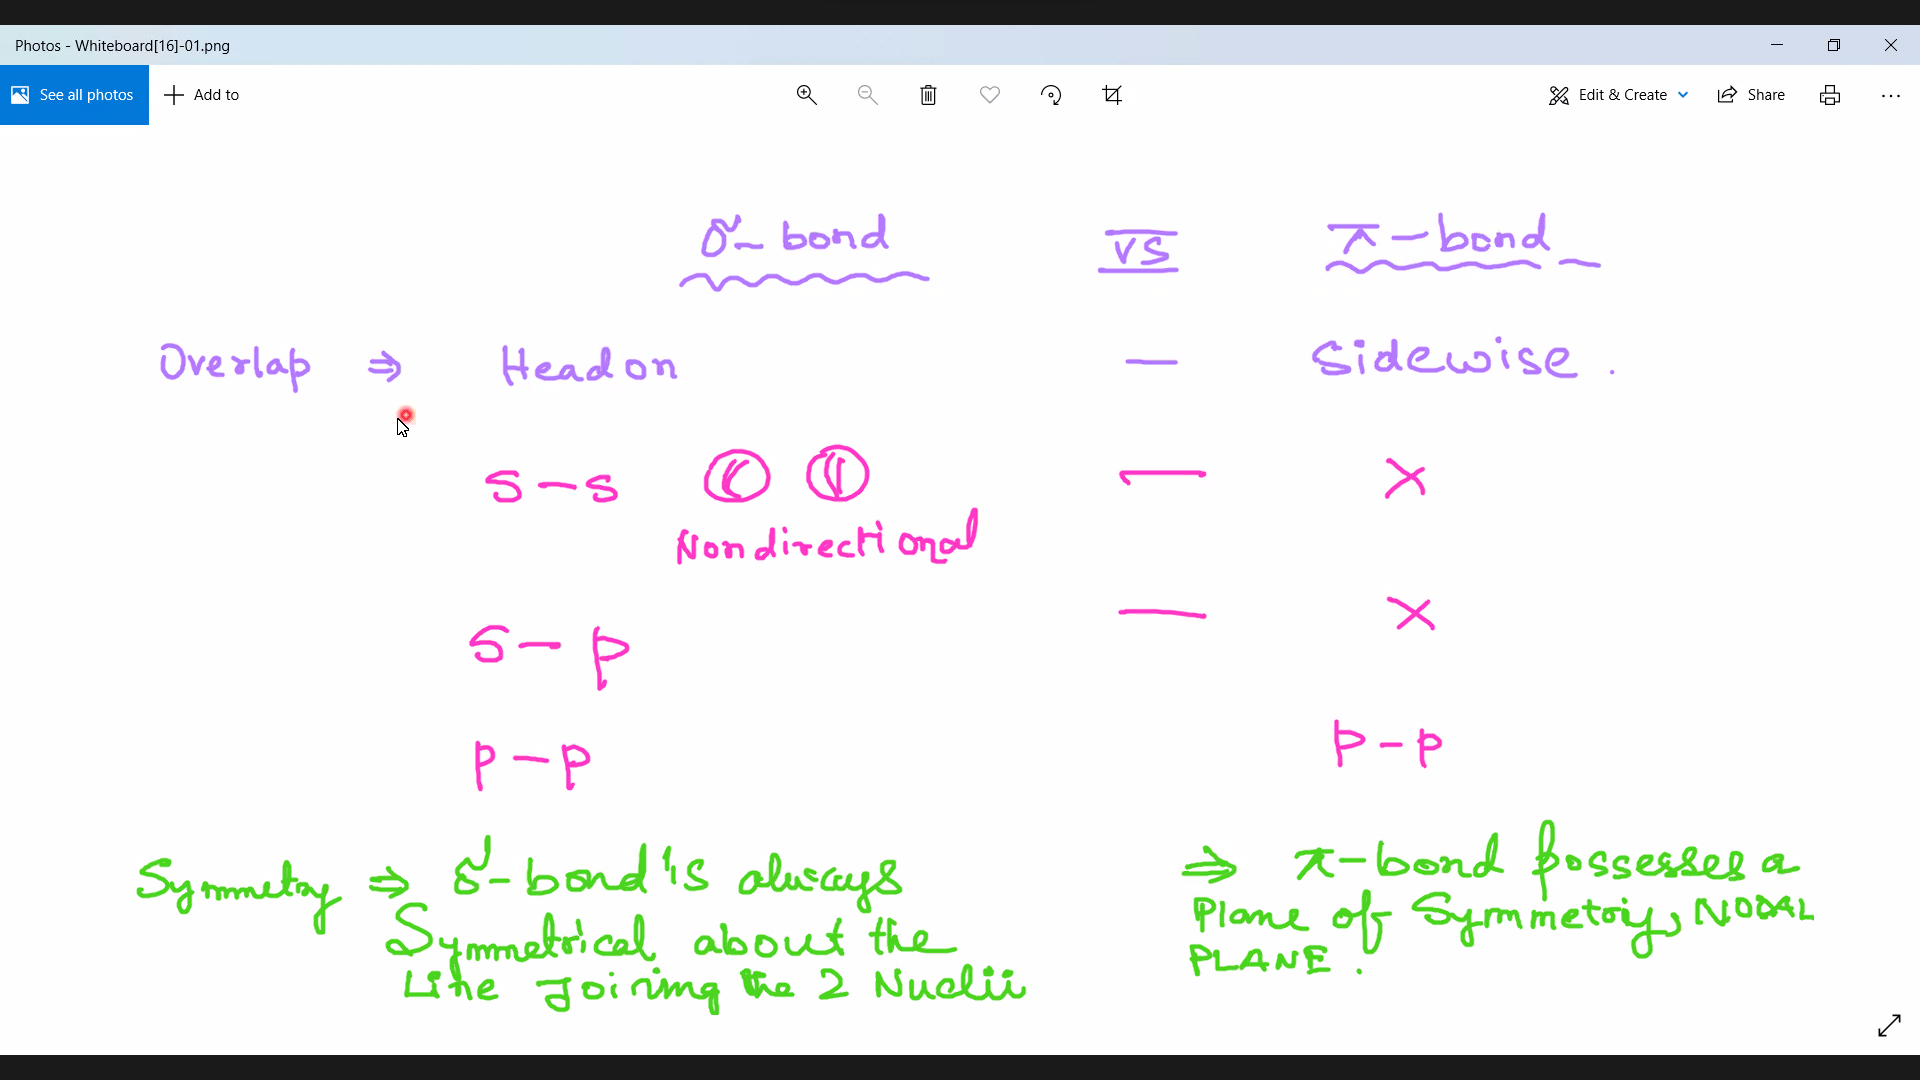 Photos - Whiteboard[16]-01.png
See all photos
Add to
Edit & Create
Share
σ-bond VS π-bond
Overlap ⇒ Head on — Sidewise.
s-s — ×
Nondirectional
s-p — ×
p-p p-p
Symmetry ⇒ σ-bond is always
Symmetrical about the
Line Joining the 2 Nuclii
⇒ π-bond possesses a
Plane of Symmetry, NODAL
PLANE.